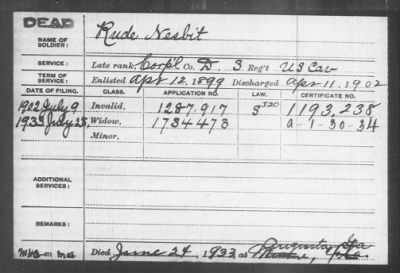 DEAD
NAME OF SOLDIER: Rude Nesbit
SERVICE: Late rank, Corpl Co. D, 3 Reg't US Cav
TERM OF SERVICE: Enlisted Apr 12, 1899 Discharged Apr 11, 1902
DATE OF FILING. CLASS. APPLICATION NO. LAW. CERTIFICATE NO.
1902 July 9 Invalid, 1287.917 1193.238
1933 July 28, Widow, 1734473 a-1-30-34
Minor,
ADDITIONAL SERVICES:
REMARKS:
Died June 24, 1933 Augusta, Ga